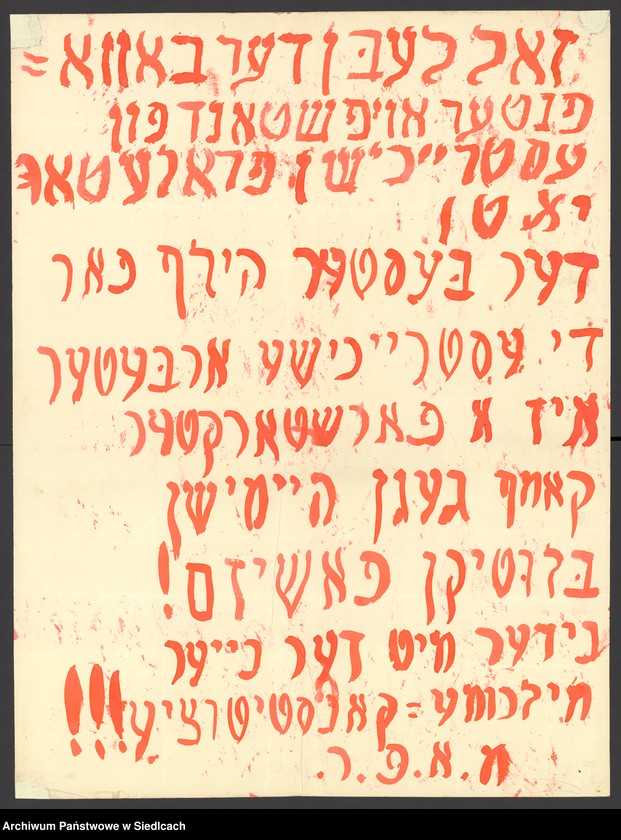 זאל לעבן דער באווא=
פנטער אויפשטאנד פון
עסטרייכישן פראלעטאר=
יאטן
דער בעסטער הילף פאר
די עסטרייכישע ארבעטער
איז א פארשטארקטער
קאמף געגן היימישן
בלוטיקן פאשיזם!
נידער מיט דער נייער
מילכומע=קאנסטיטוציע!!!
מ.א.פ.ר.
Archiwum Państwowe w Siedlcach